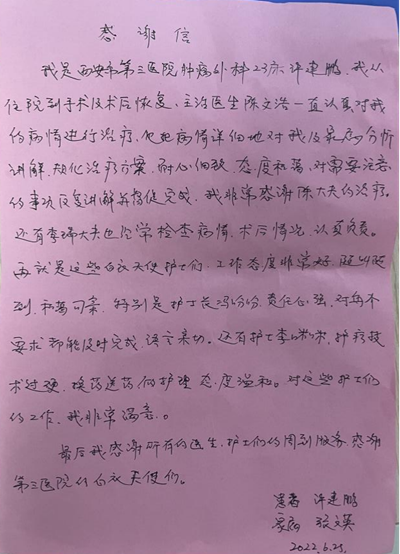 感谢信
我是西安市第三医院肿瘤外科23床许建鹏，我从
住院到手术及术后恢复，主治医生陈文浩一直认真对我
的病情进行治疗，他把病情详细地对我及家属分析
讲解，规化治疗方案，耐心细致，态度和蔼，对需要注意
的事项反复讲解并督促完成，我非常感谢陈大夫的治疗。
还有李瑞大夫也经常检查病情，术后情况，认真负责。
再就是这些白衣天使护士们，工作态度非常好，随叫随
到，和蔼可亲，特别是护士长冯份份，责任心强，对每个
要求都能及时完成，语言亲切。还有护士李，护理技
术过硬，换药送药何护理态度温和。对这些护士们
的工作，我非常满意。
最后我感谢所有的医生，护士们的周到服务，感谢
第三医院的白衣天使们。
患者 许建鹏
家属 张文英
2022.6.23.